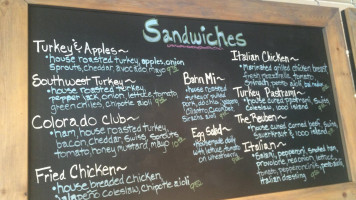 Sandwiches
Turkey & Apples~
• house roasted turkey, apples, onion
Sprouts, cheddar, avocado, mayo
Southwest Turkey~
• house roasted turkey,
pepper jack, onion, lettuce, tomato
green chiles, chipotle aioli
Colorado Club~
• ham, house roasted turkey,
bacon, cheddar, Swiss, sprouts
tomato, honey mustard, mayo
Fried Chicken~
• house breaded chicken
jalapeño coleslaw, chipotle aioli
Bahn Mi~
• house roasted
pork,
Cilantro, Cucumber,
Sriracha, aioli
Egg Salad~
• homemade daily
with lettuce, tomato
on wheatberry
Italian Chicken~
• Marinated grilled chicken breast
fresh mozzarella, tomato,
Spinach, pesto aioli
Turkey Pastrami~
• house cured pastrami, Swiss,
Coleslaw, 1000 island
The Reuben~
• house cured corned beef, Swiss
sauerkraut & 1000 island
Italian~
• Salami, pepperoni, smoked ham,
provolone, red onion, lettuce,
tomato, pepperoncinis, pesto aioli
Italian dressing